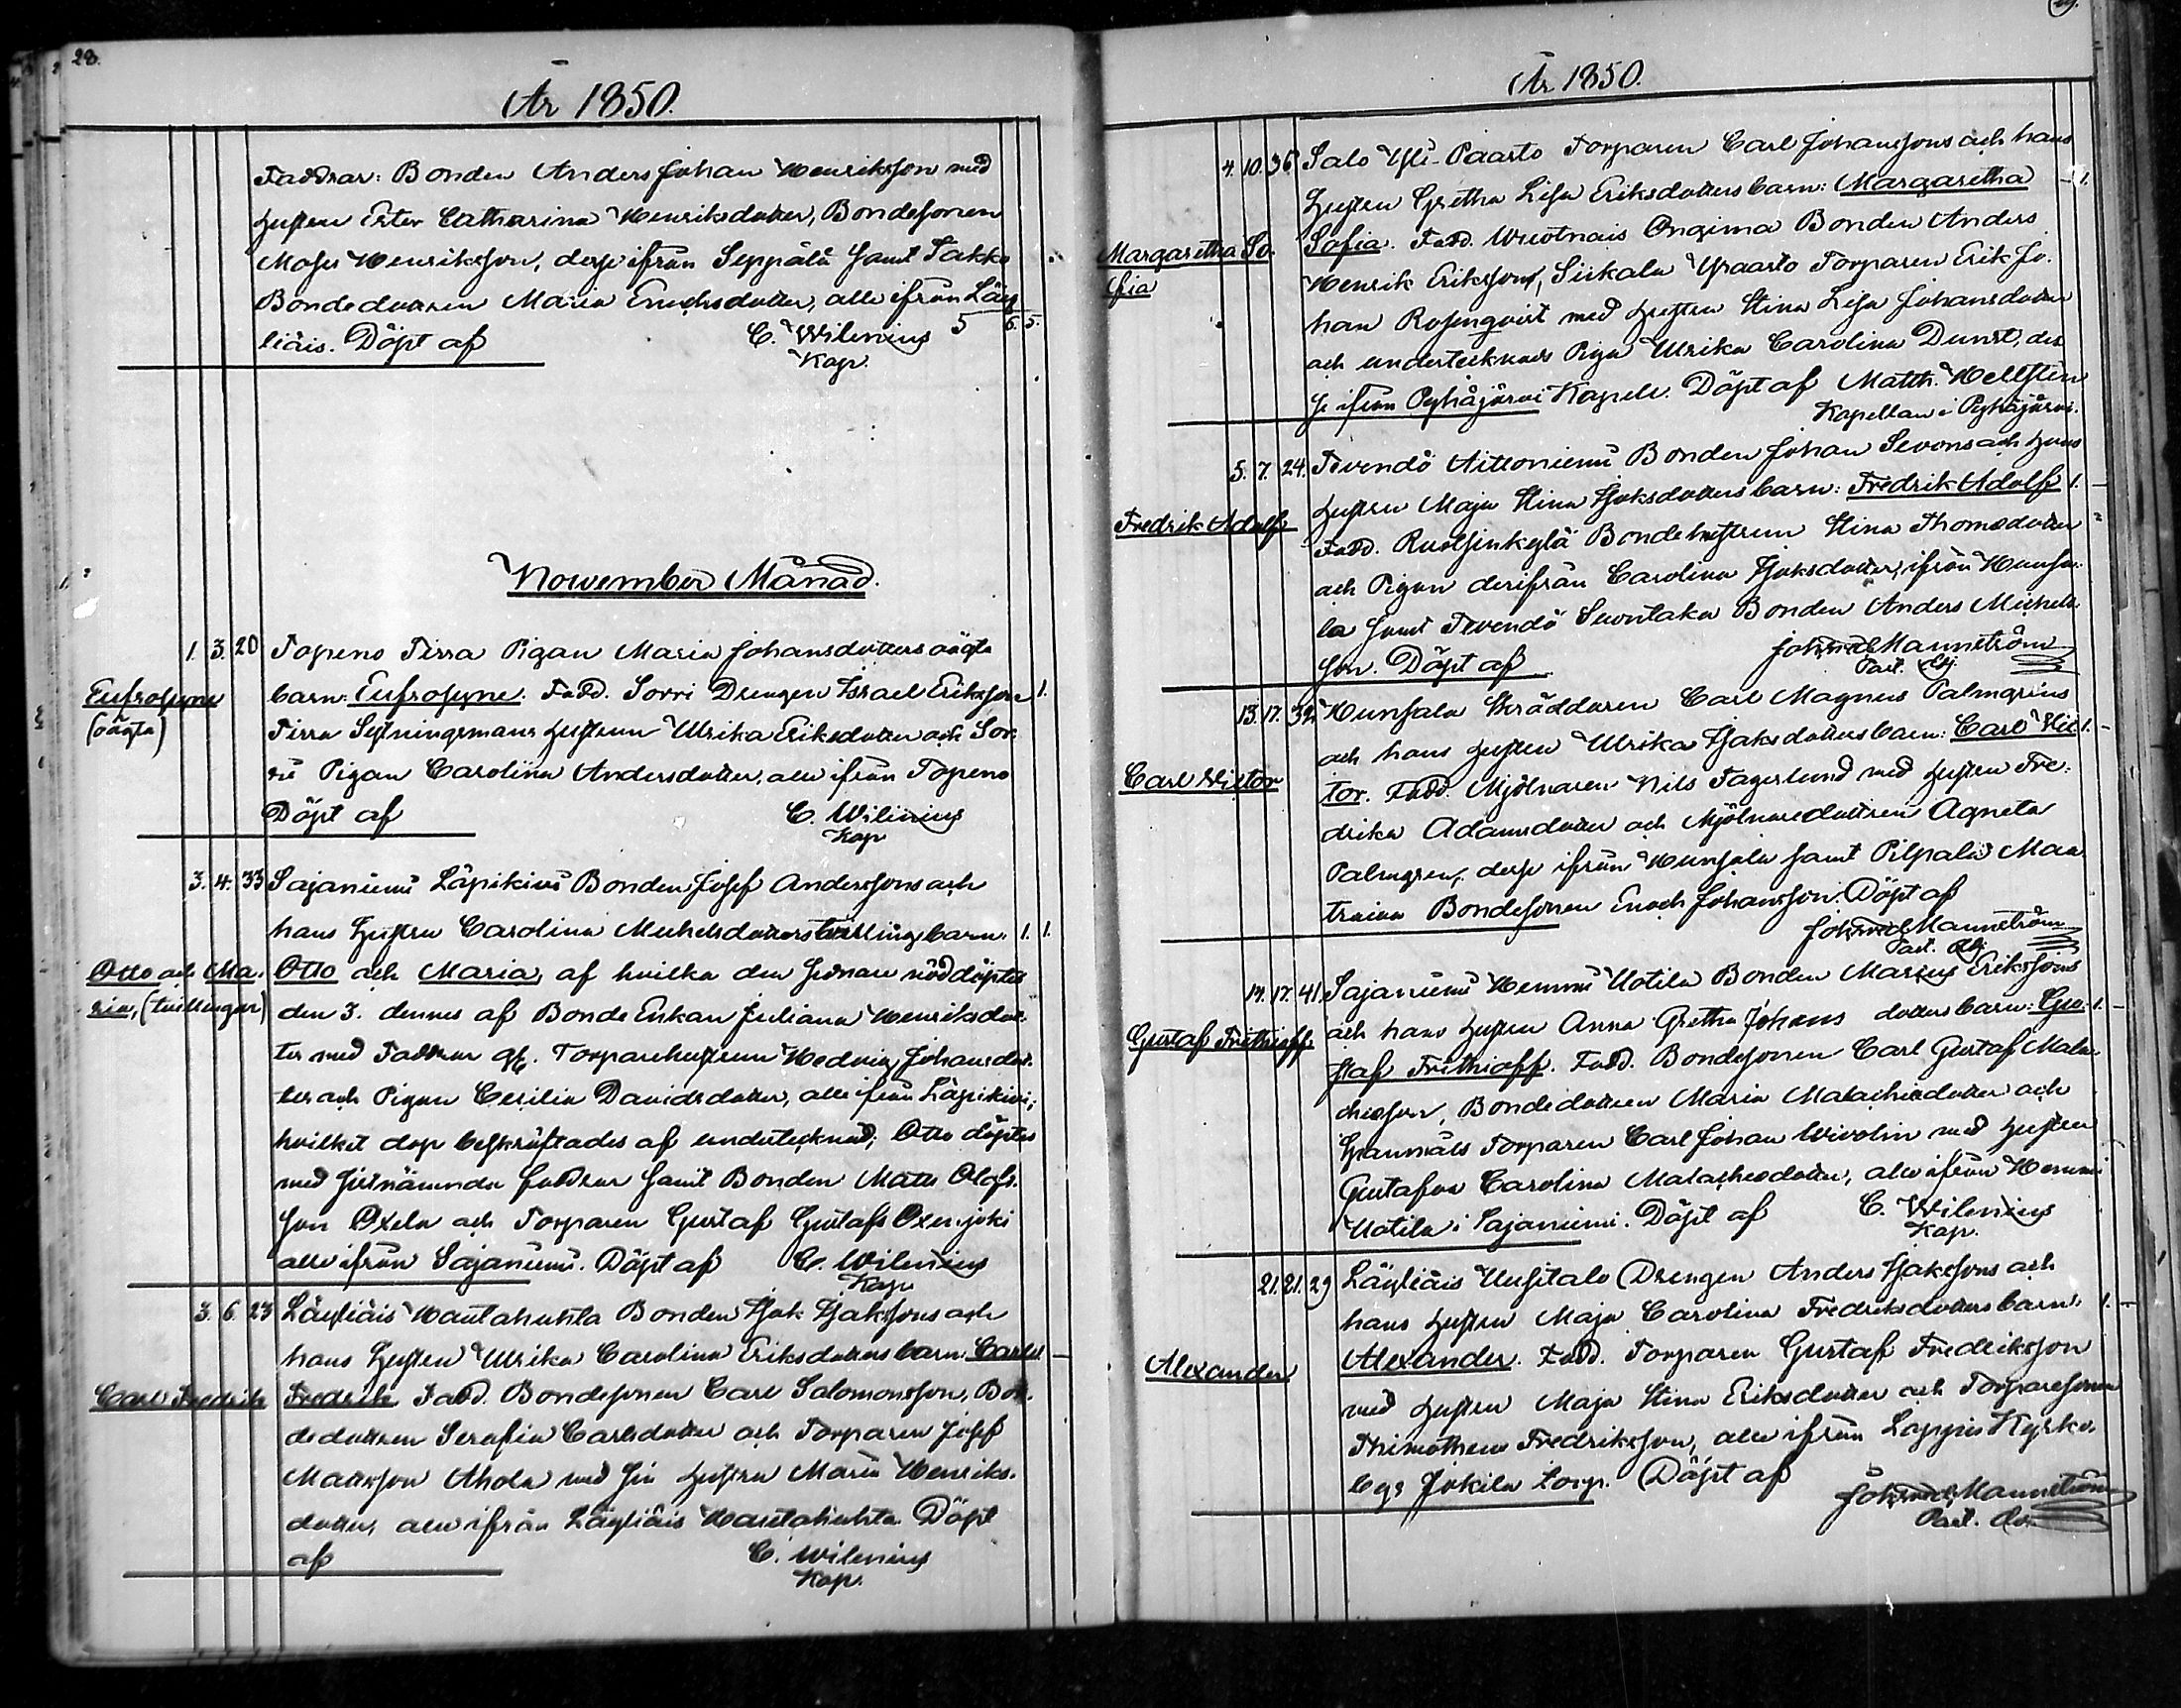 28.
År 1850.
Faddrar: Bonden Anders Johan Henriksson med
hustru Ester Catharina Henriksdotter, Bondesonen
Moses Henriksson, desse ifrån Seppälä samt Takko
Bondedottren Maria Enochsdotter, alle ifrån Läy
liäis. Döpt af C. Wilenius 5 6. 5.
Kap.
November Månad.
1. 3. 20 Topeno Pirra Pigan Maria Johansdotters oägta
Eufrosyne
(oägta)
barn: Eufrosyne. Fadd. Sorri Drengen Israel Eriksson 1.
Pirra Sytningsmans hustrun Ulrika Eriksdotter och Sor
ri Pigan Carolina Andersdotter, alle ifrån Topeno
Döpt af C. Wilenius
Kap
3. 4. 33 Sajaniemi Läpikivi Bonden Josef Anderssons och
hans hustru Carolina Michelsdotters tvillingbarn: 1. 1.
Otto och Ma-
ria, (tvillingar)
Otto och Maria, af hvilka den sednare nöddöptes
den 3. dennes af Bonde Enkan Juliana Henriksdot-
ter med Faddrar Torparehustrun Hedvig Johansdot-
ter och Pigan Cecilia Davidsdotter, alle ifrån Läpikivi;
hvilket dop bekräftades af undertecknad; Otto döptes
med sistnämnda faddrar samt Bonden Matts Olofs-
son Oxela och Torparen Gustaf Gustafs Oxenjoki
alle ifrån Sajaniemi. Döpt af C. Wilenius
Kap.
3. 6. 23 Läyliäis Hautahuhta Bonden Isak Isakssons och
hans hustru Ulrika Carolina Eriksdotters barn: Carl 1. –
Carl Fredrik
Fredrik. Fadd. Bondesonen Carl Salomonsson, Bon-
dedottren Serafia Carlsdotter och Torparen Josef
Mattsson Ahola med sin hustru Maria Henriks-
dotter, alle ifrån Läyliäis Hautahuhta. Döpt
af C. Wilenius
Kap.
29.
År 1850.
4. 10. 36 Salo Yli-Paarto Torparen Carl Johanssons och hans
hustru Gretha Lisa Eriksdotters barn: Margaretha – 1.
Margaretha So-
fia
Sofia. Fadd. Wuotnais Ongima Bonden Anders
Henrik Eriksson, Sirkala Torparen Erik Jo-
han Rosenqvist med hustru Stina Lisa Johansdotter
och undertecknads Piga Ulrika Carolina Dunst, des
se ifrån Pyhäjärvi Kapell. Döpt af Matth. Hellsten
Kapellan i Pyhäjärvi.
5. 7. 24. Tevendö Aittoniemi Bonden Johan Sevons och hans
hustru Maja Stina Isaksdotters barn: Fredrik Adolf 1. –
Fredrik Adolf
Fadd. Ruolsinkylä Bondehustrun Stina Thomædotter
och Pigan derifrån Carolina Isaksdotter, ifrån Hunsa-
la samt Tevendö Suontaka Bonden Anders Michels
son. Döpt af Johan Mannström
Past. Adj.
13. 17. 32 Hunsala Skräddaren Carl Magnus Palmgrens
och hans hustru Ulrika Isaksdotters barn: Carl Vic- 1. –
Carl Victor
tor. Fadd. Mjölnaren Nils Fagerlund med hustru Fre-
drika Adamsdotter och Mjölnaredottren Agneta
Palmgren, desse ifrån Hunsala samt Pilpala Maa
traivas Bondesonen Enoch Johansson. Döpt af
Johan Mannström
Past. Adj.
14. 17. 41. Sajaniemi Hemmi Uotila Bonden Marcus Erikssons
Gustaf Frithioff
och hans hustru Anna Gretha Johans dotters barn: Gu- 1. –
staf Frithioff. Fadd. Bondesonen Carl Gustaf Mala-
chiesson, Bondedottren Maria Malachiedotter och
Torparen Carl Johan Wivolin med hustru
Gustafva Carolina Malachiedotter, alle ifrån Hemmi
Uotila i Sajaniemi. Döpt af C. Wilenius
Kap.
21. 21. 29 Läyliäis Uusitalo Drengen Anders Isakssons och
hans hustru Maja Carolina Fredriksdotters barn: 1. –
Alexander
Alexander. Fadd. Torparen Gustaf Fredriksson
med hustru Maja Stina Eriksdotter och Torparesonen
Thimotheus Fredriksson, alle ifrån Loppis Kyrko-
bys Jokila torp. Döpt af Johan Mannström
Past. Adj.